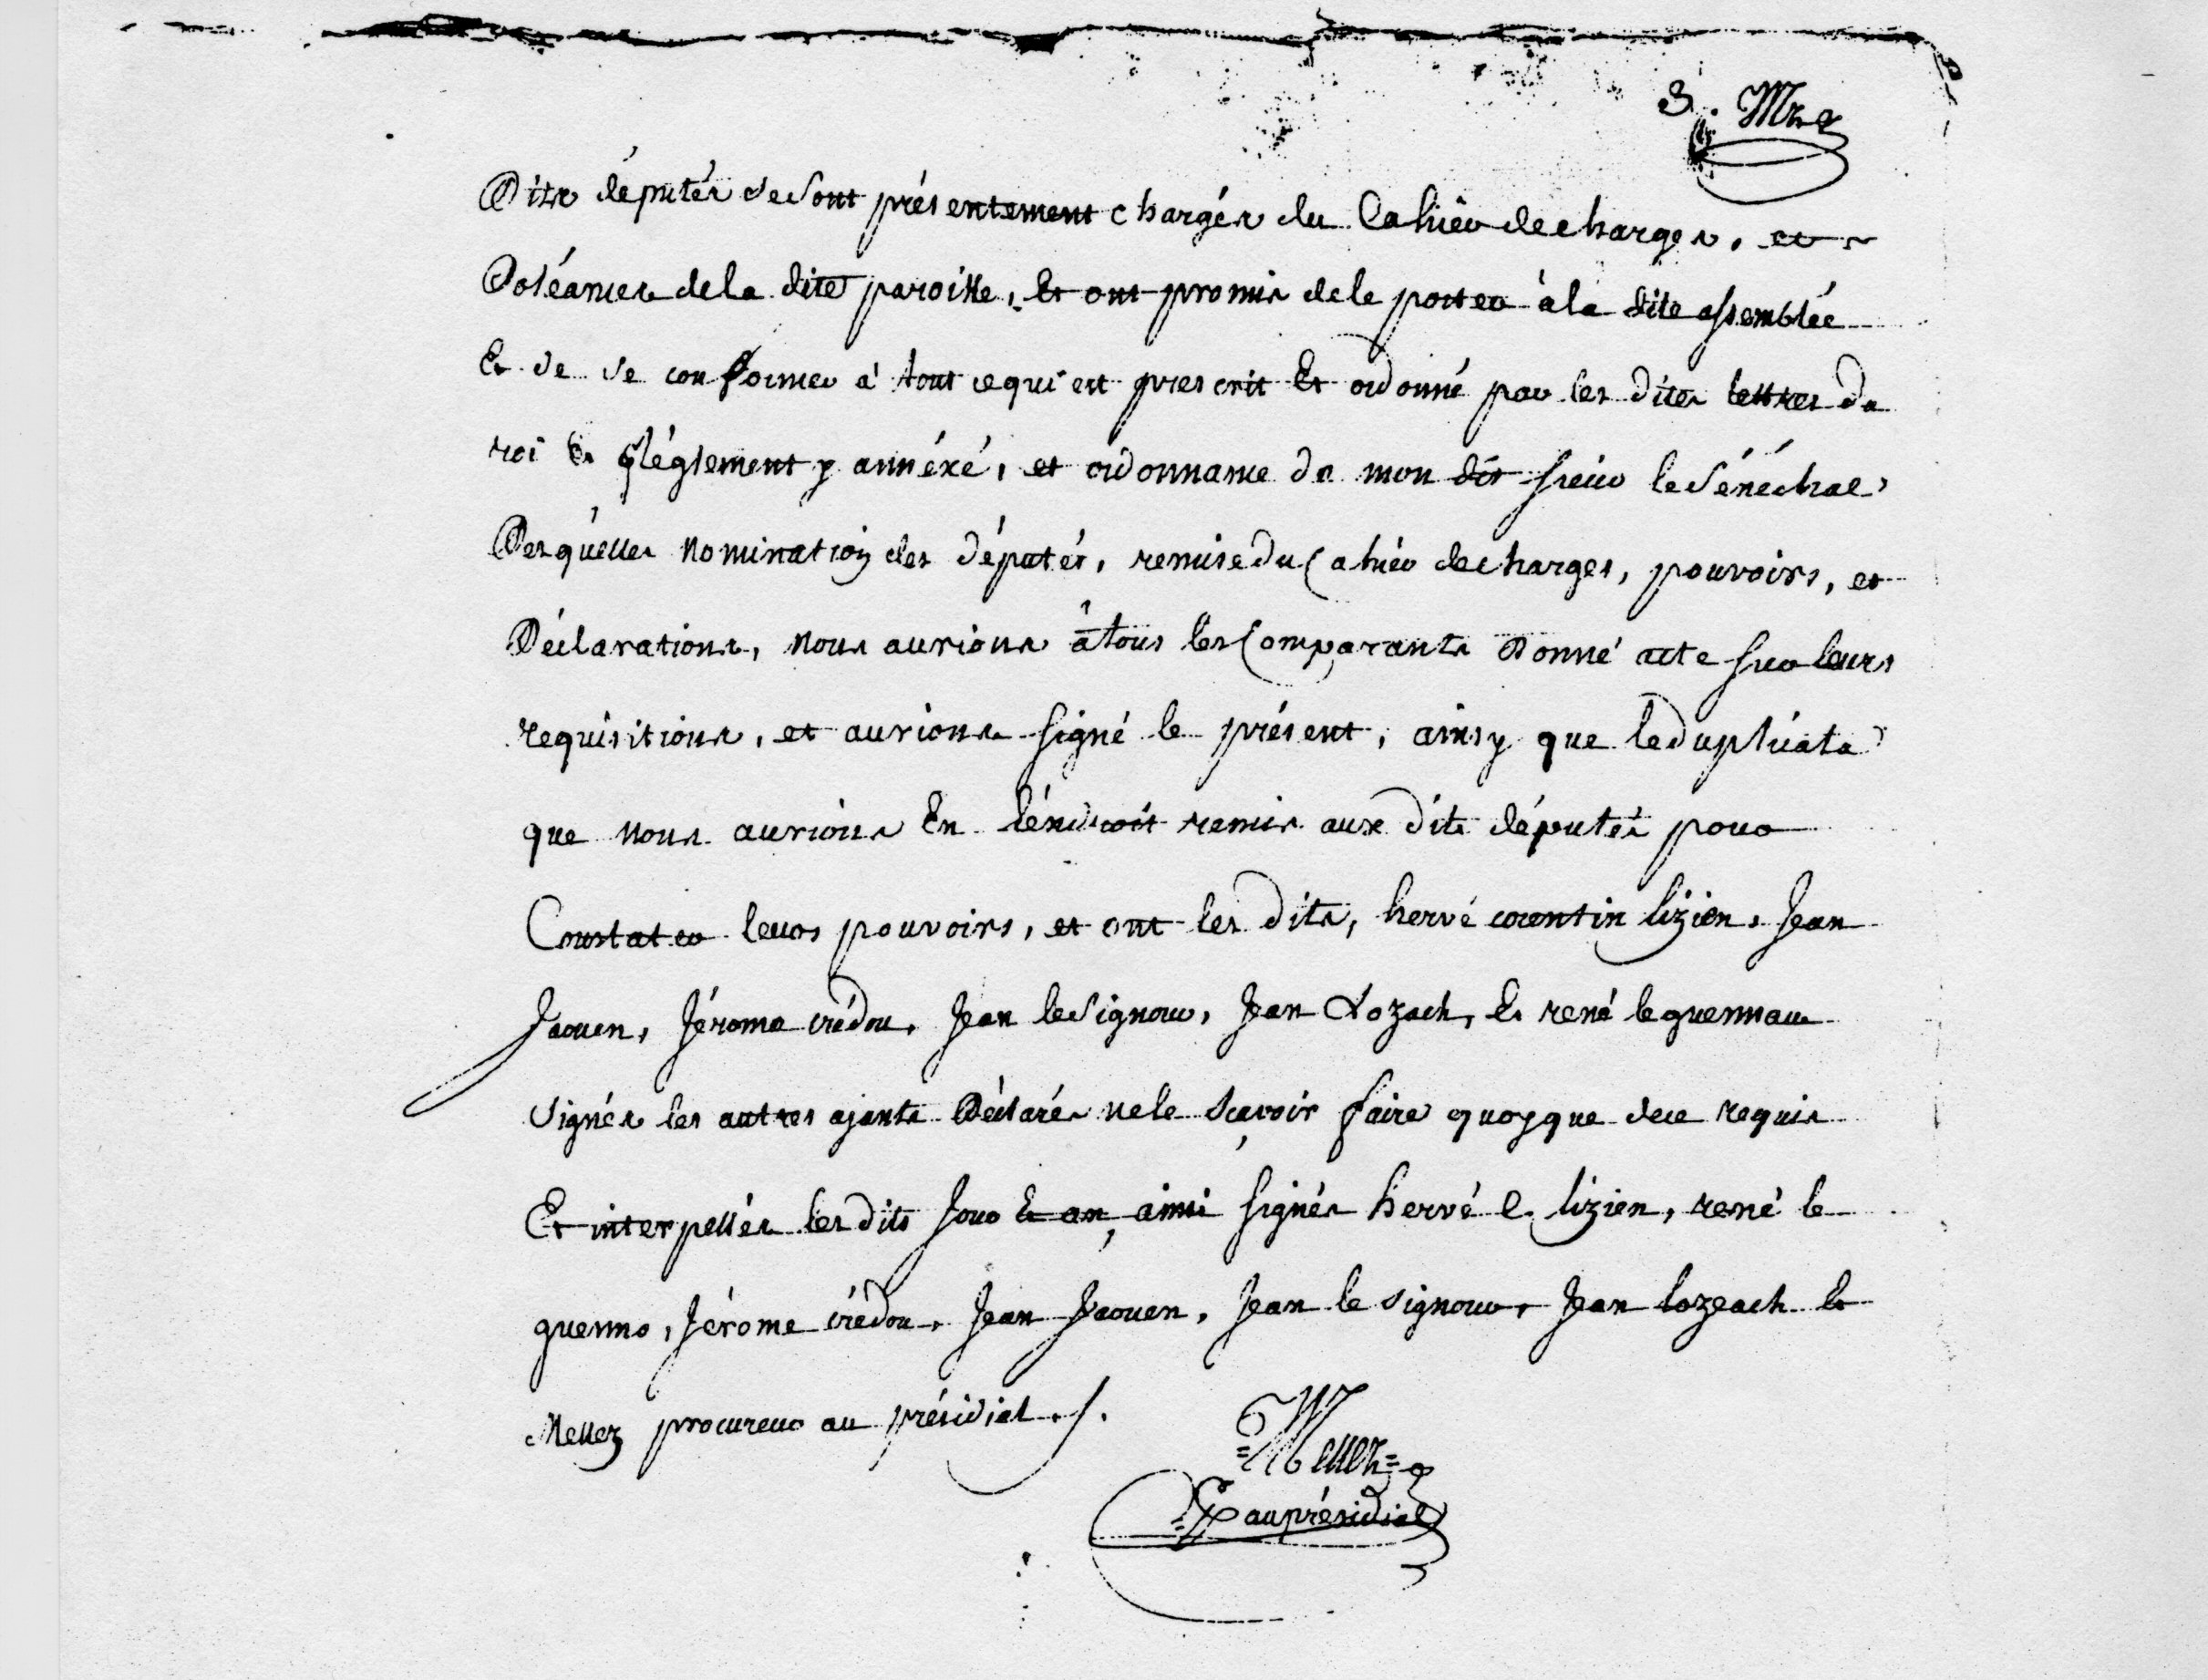 3. Mrz
Dits députés se sont présentement chargés du Cahier de charges, et
Doléances de la dite paroisse, Et ont promis de le porter à la dite assemblée
Et de se conformer à tout ce qui est prescrit Et ordonné par les dites lettres du
roi Et Réglement y annéxé, et ordonnance de mon dit sieur le Sénéchal
Desquelles Nomination des députés, remise du Cahier de charges, pouvoirs, et
Déclarations, Nous aurions à tous les Comparants Donné acte sur leurs
requisitions, et aurions signé le présent, ainsy que le duplicata
que Nous aurions En l'éndroit remis aux dits députés pour
Constater leurs pouvoirs, et ont les dits, hervé corentin lizien, Jean
Jaouen, Jérome crédou, Jean le Signour, Jean Lozach, Et rené le guennau
Signés les autres ajants Déclarés ne le sçavoir faire quoyque de ce requis
Et interpellés les dits jour Et an, ainsi signés hervé c. lizien, rené le
guenno, Jérome crédou, Jean Jaouen, Jean le signour, Jean lozeach Et
Mellez procureur au présidial ./.
=Mellez=
au présidial